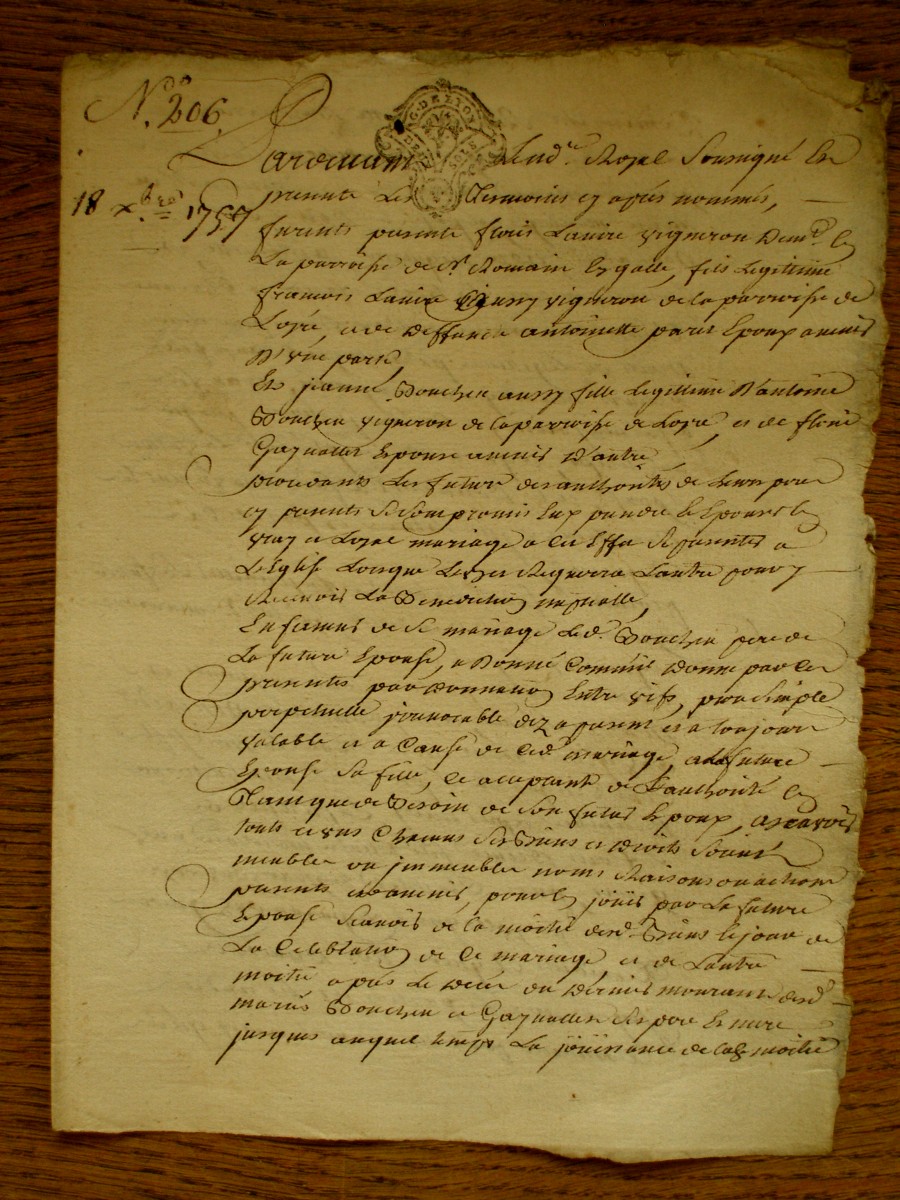 N.do 206.
18 xbre 1757
GEN. DE LYON
SOLS
Pardevant Royal Soussigné En
presence Les Temoins cy après nommés,
furents presente fleris Lanire vigneron Demt.
La parroisse de St. Romain En galle, fils Legittime
francois Lanire aussy vigneron de la parroisse de
Loyre, et de Deffunte antoinette paris Epoux avenir
D'une part,
Et jeanne Bouchen aussy fille Legittime D'antoine
Bouchen vigneron de la parroisse de Loyre, et de
Epouse avenir D'autre,
procedants Les futurs des authorités de Leurs pere
et parents Se Sont promis Eux prendre & Epouser En
vray et Loyal mariage a cet Effet Se presenter a
L'Eglise Lorsque L'un Requerra L'autre pour y
Recevoir La Benediction nuptialle,
En faveur de Ce mariage Led. Bouchen pere de
La future Epouse, a Donné Comme il Donne par Ces
presentes par donnation Entre vifs, pure Simple
perpetuelle jrrevocable dez a present et a toujours
valable et a Cause de Ced. mariage, a La future
Epouse Sa fille, Ce acceptant de L'authorité En
tant que de Besoin de Son futur Epoux, ascavoir
touts et uns Chacuns Ses Biens et Droits Soient
meubles ou jmmeubles noms Raisons ou actions
presents et avenir, pour En joüir par La future
Epouse Scavoir de la moitié desd. Biens le jour de
La Celebration de Ce mariage, et de L'autre
moitié après Le Decès du Dernier mourant desd.
mariés Bouchen et Ses pere Et mere
jusques auquel temps La joüissance de lad. moitié